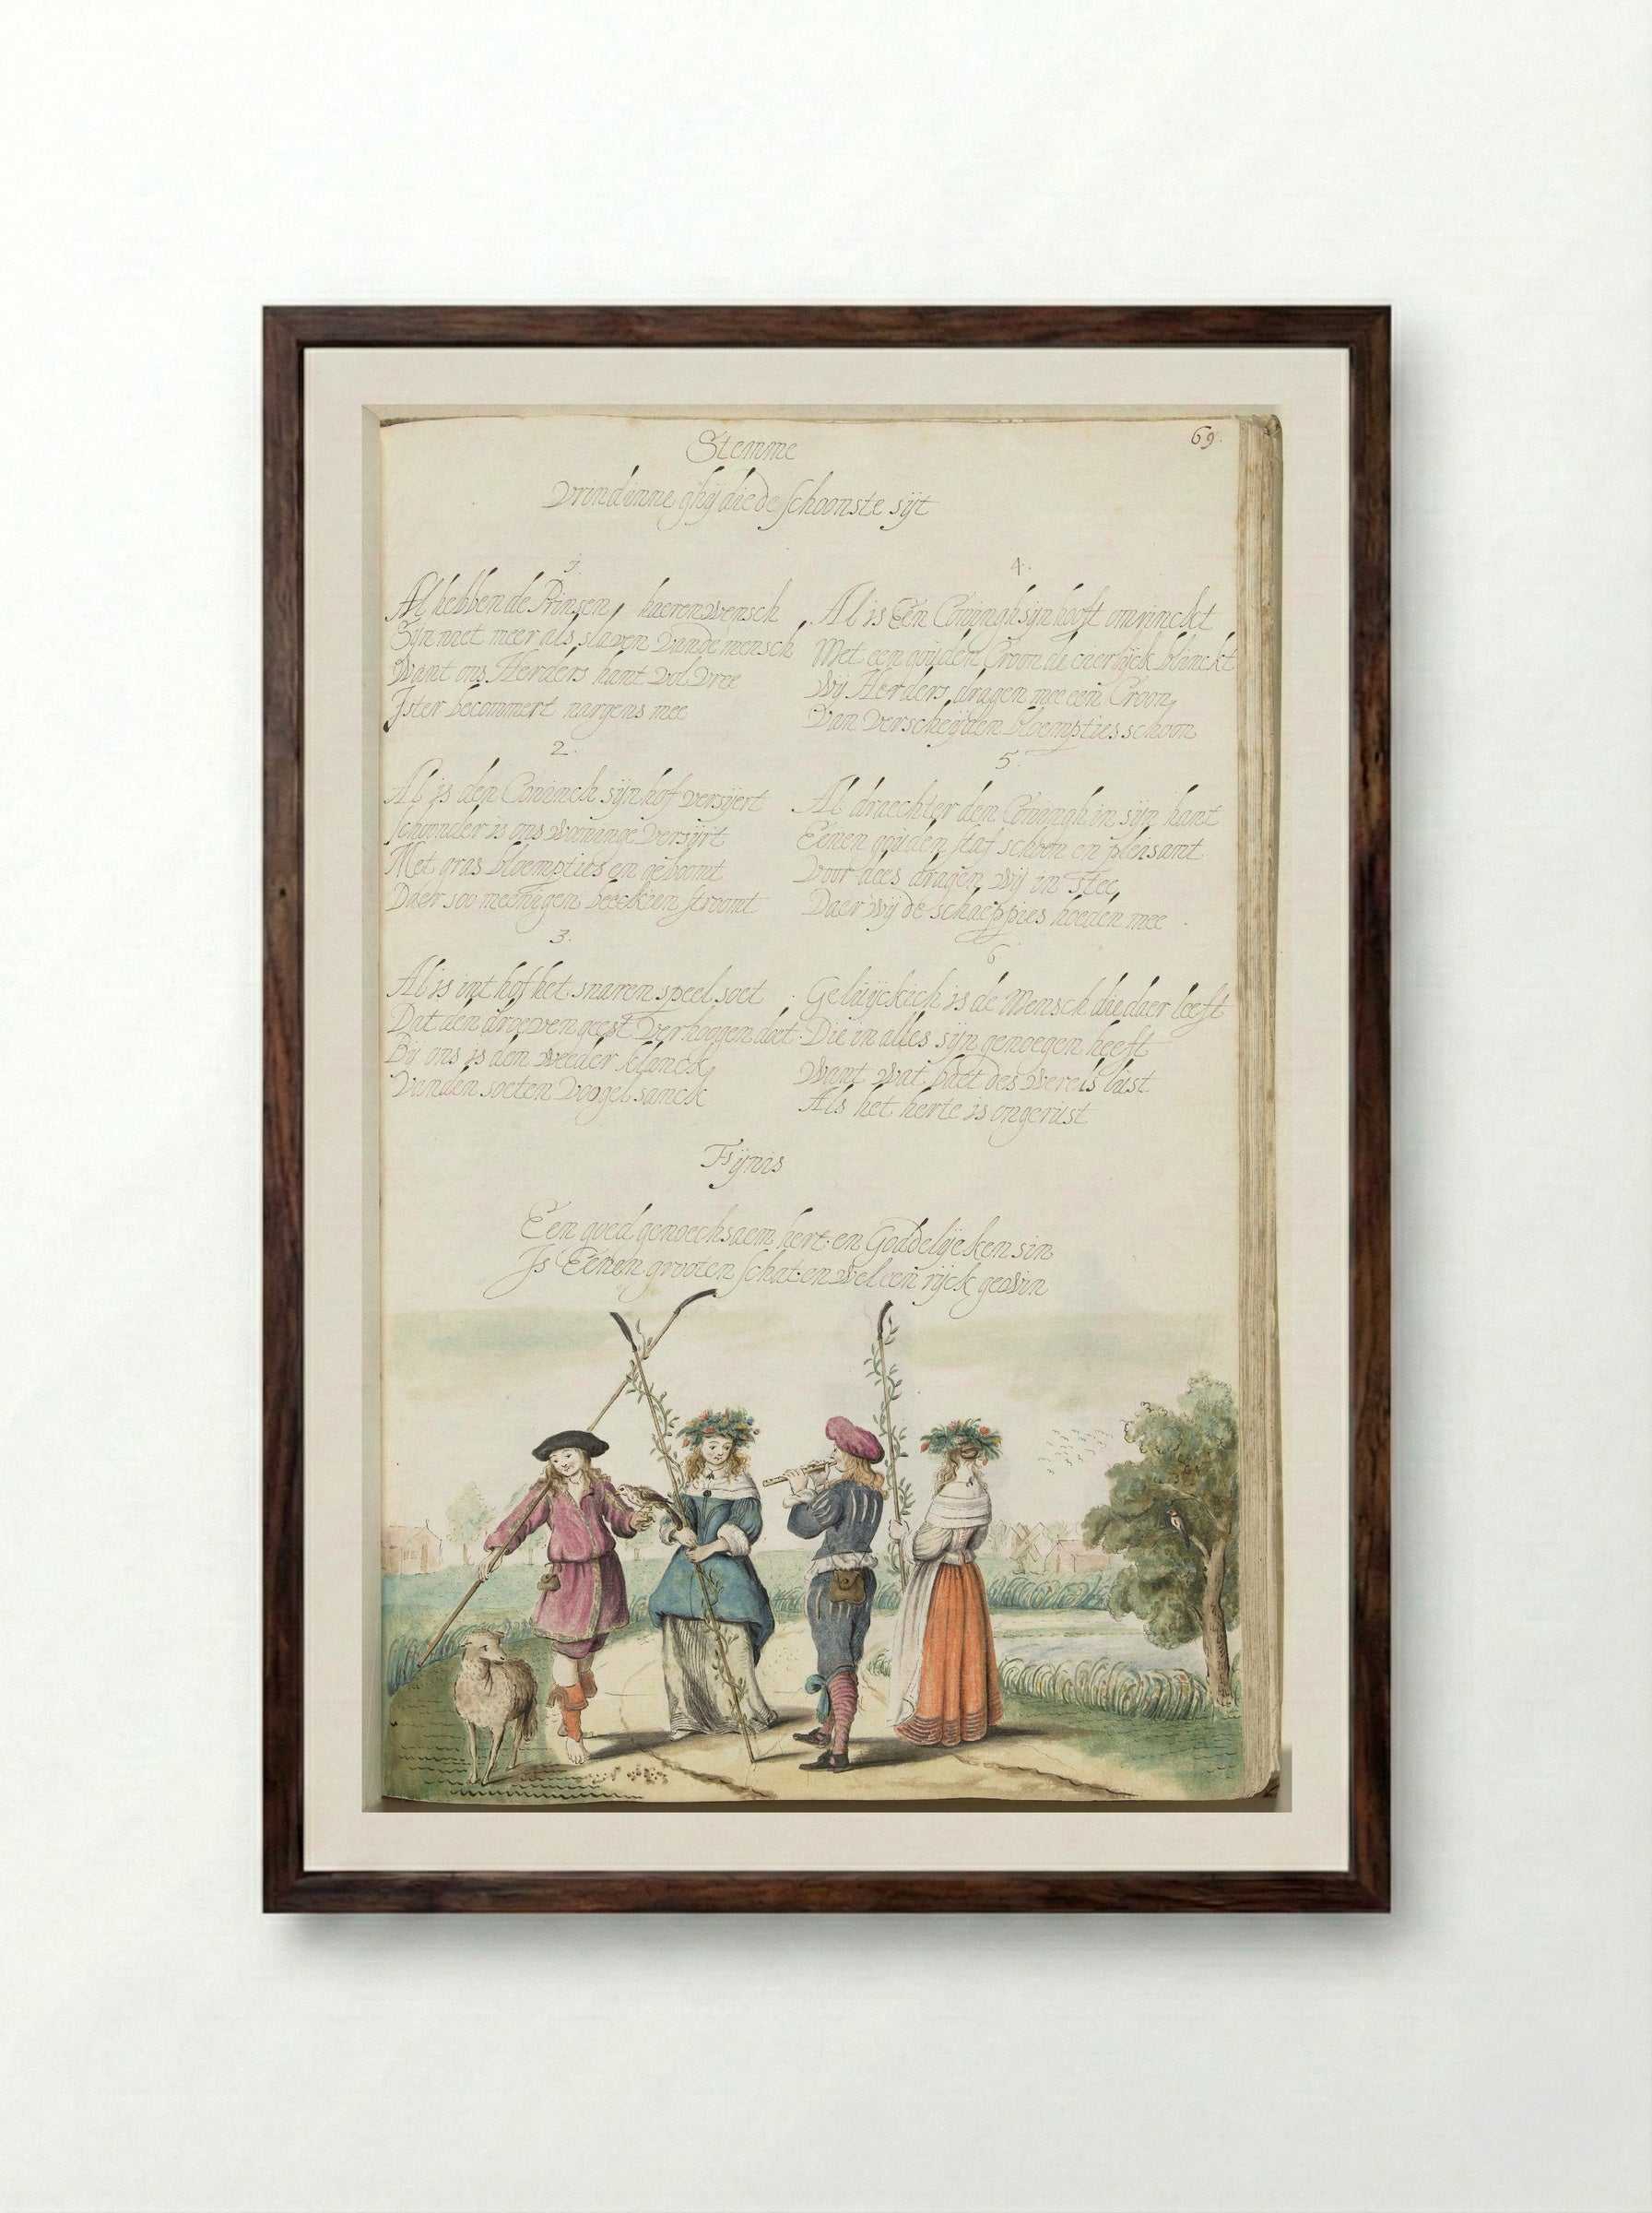 69.
Stemme
Vrindinne ghij die de schoonste sijt
1
Al hebben de Prinsen, haeren wensch
Sijn niet meer als slaven vande mensch
Want ons Herders hant vol vree
Ister becommert nargens mee
2.
Al is den Coninck sijn hof versijert
schoonder is ons wooninge versijrt
Met gras bloempties en geboomt
Daer soo meenigen beeckien stroomt
3.
Al is int hof het snaren speel soet
Dat den droeven geest verhoogen doet
Bij ons is den weeder klanck
Vanden soeten voogel sanck
4.
Al is Een Coningh sijn hooft omrinckt
Met een gouden Croon de caerlijck blinckt
Wij Herders dragen mee een Croon
Van verscheijden bloempties schoon
5.
Al draechter den Coningh in sijn hant
Eenen gouden staf schoon en pleisant
Voor dees dragen wij in stee
Daer wij de schaeppies hoeden mee
6
Geluijckich is de Mensch die daer leeft
Die in alles sijn genoegen heeft
Want wat baet des werels lust
Als het herte is ongerust
Fijnis
Een goed genoechsaem hert en Goddelijcken sin
Is Eenen grooten schat en wel een rijck gewin